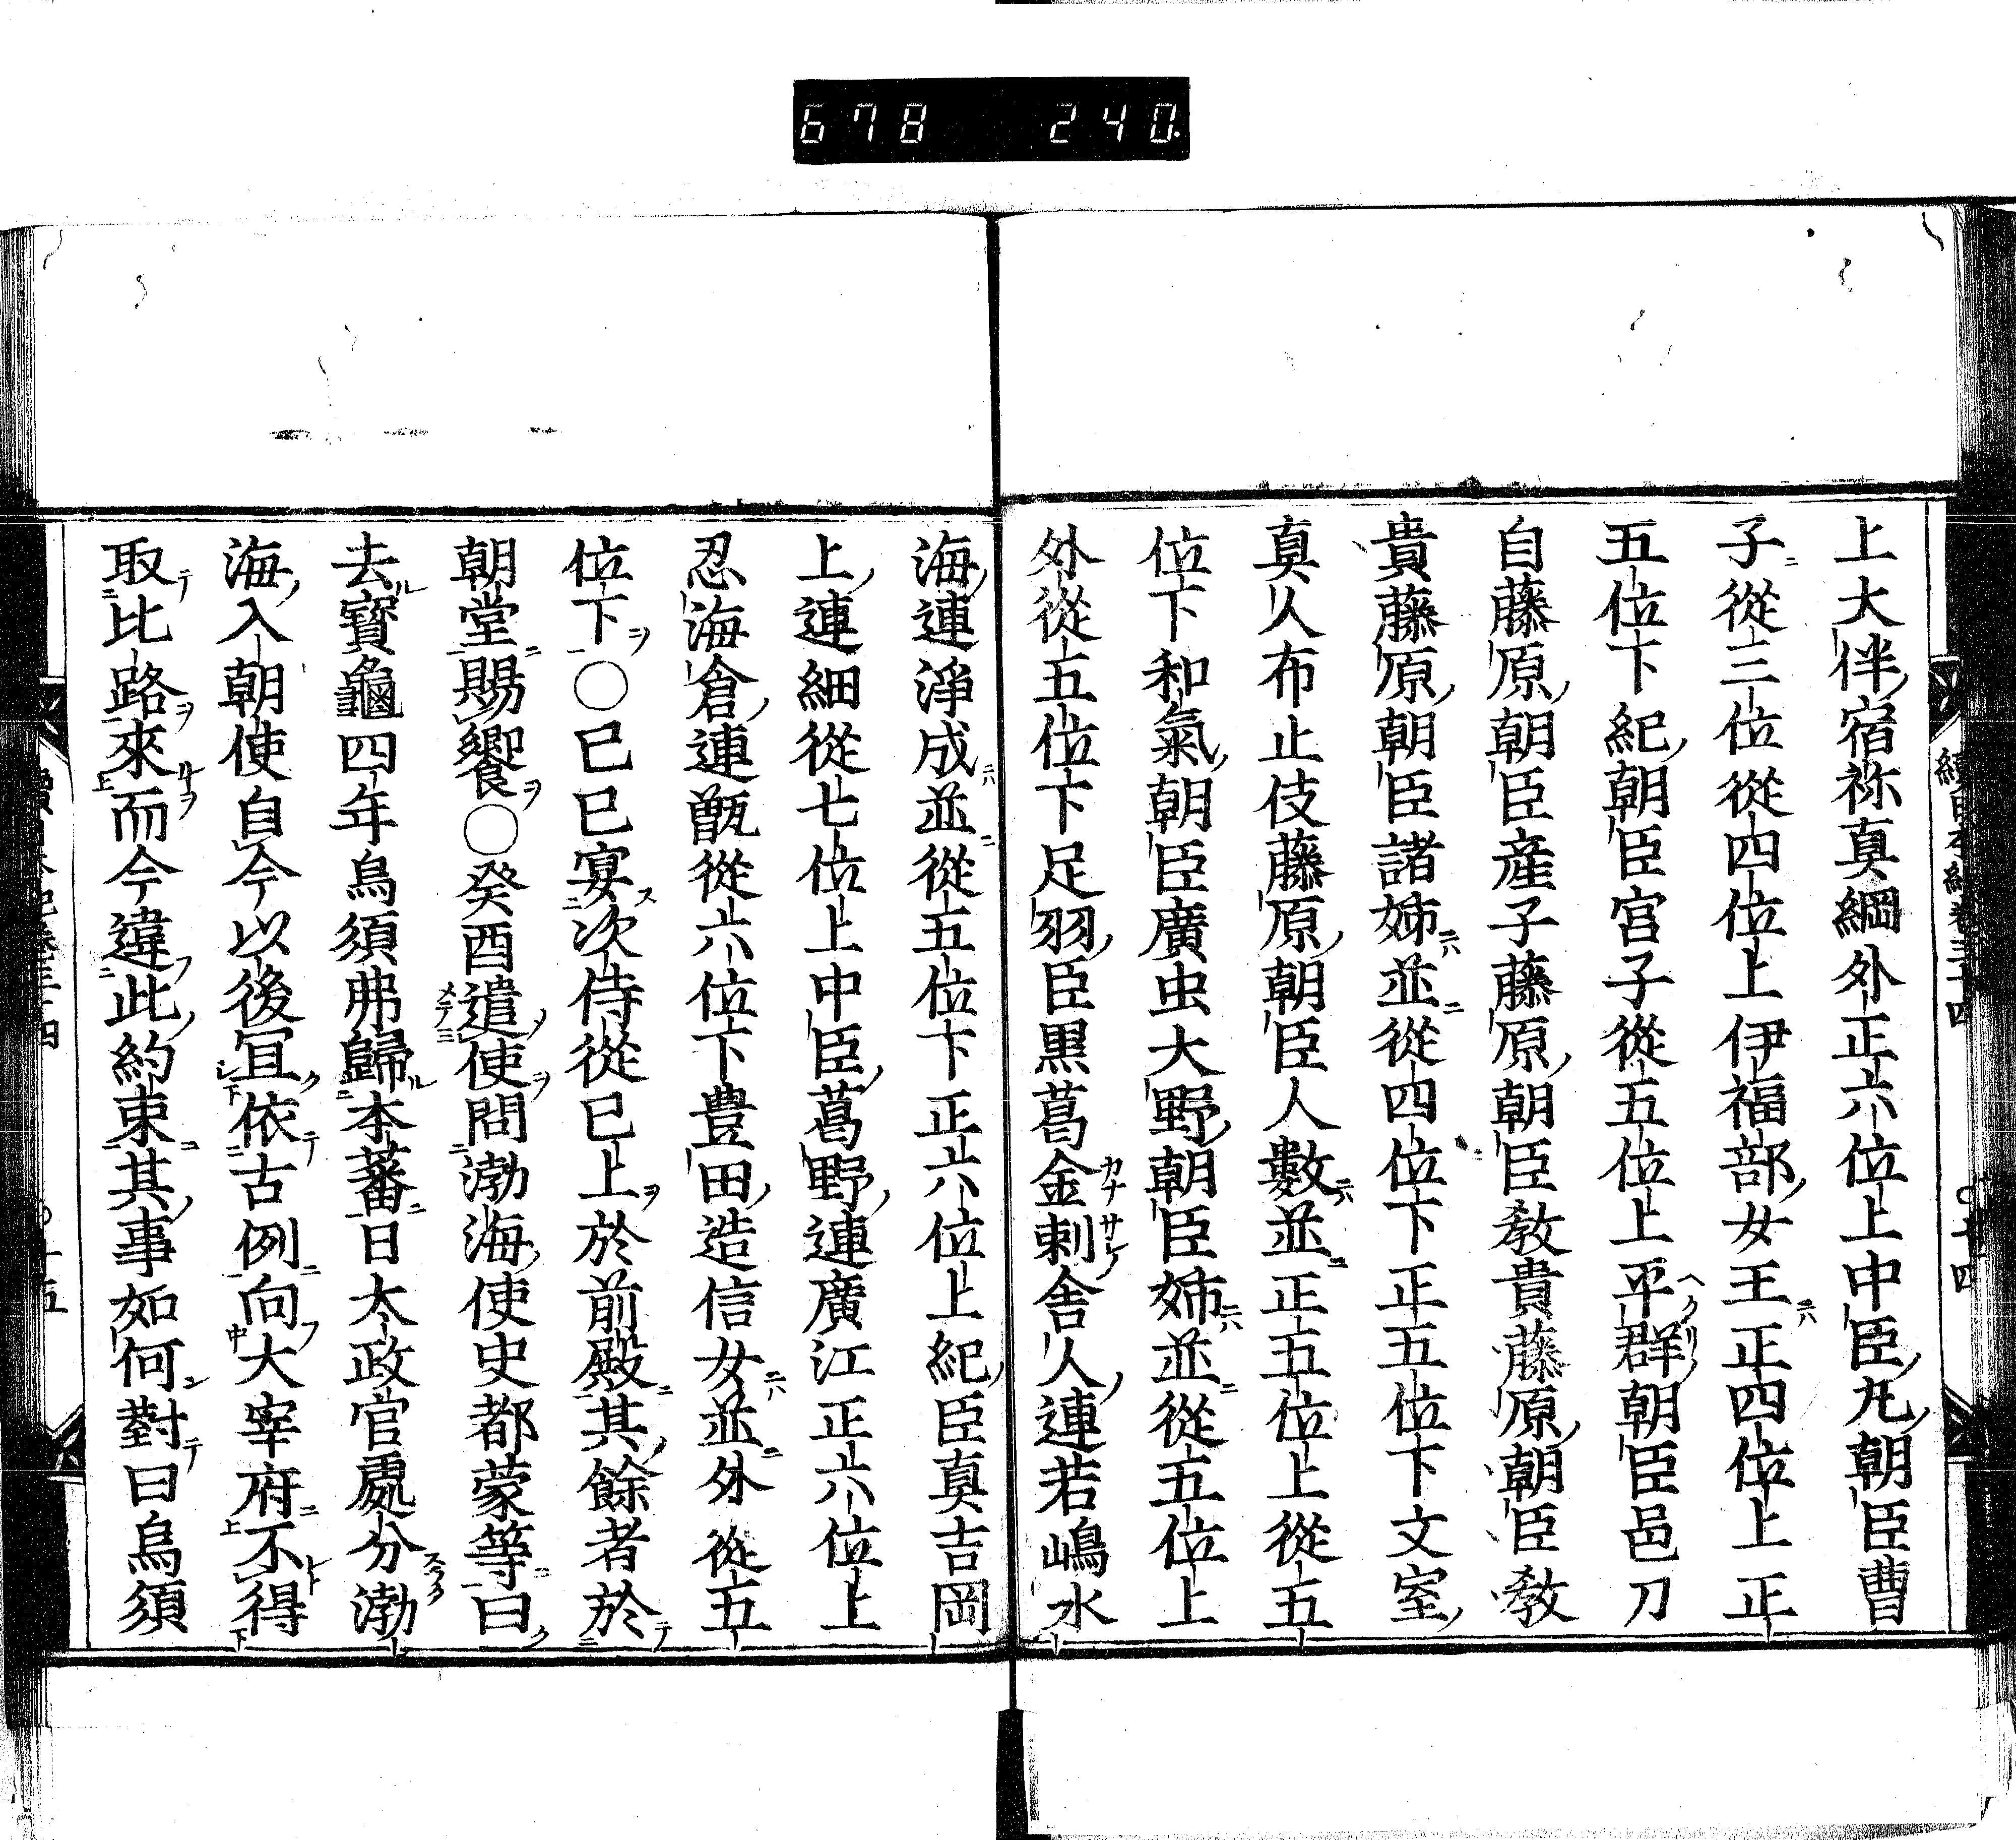 678 240.
上大伴宿祢真綱外正六位上中臣丸朝臣曹
子從三位從四位上伊福部女王正四位上正
五位下紀朝臣宮子從五位上平群朝臣邑刀
自藤原朝臣產子藤原朝臣教貴藤原朝臣教
貴藤原朝臣諸姉並從四位下正五位下文室
真人布止伎藤原朝臣人數並正五位上從五
位下和氣朝臣廣虫大野朝臣姉並從五位上
外從五位下足羽臣黒葛金刺舎人連若嶋水
海連淨成並從五位下正六位上紀臣真吉岡
上連細從七位上中臣葛野連廣江正六位上
忍海倉連甑從六位下豊田造信女並外從五
位下○己巳宴次侍從已上於前殿其餘者於
朝堂賜饗○癸酉遣使問渤海使史都蒙等曰
去寶龜四年烏須弗歸本蕃日太政官處分渤
海入朝使自今以後冝依古例向大宰府不得
取比路來而今違此約束其事如何對曰烏須